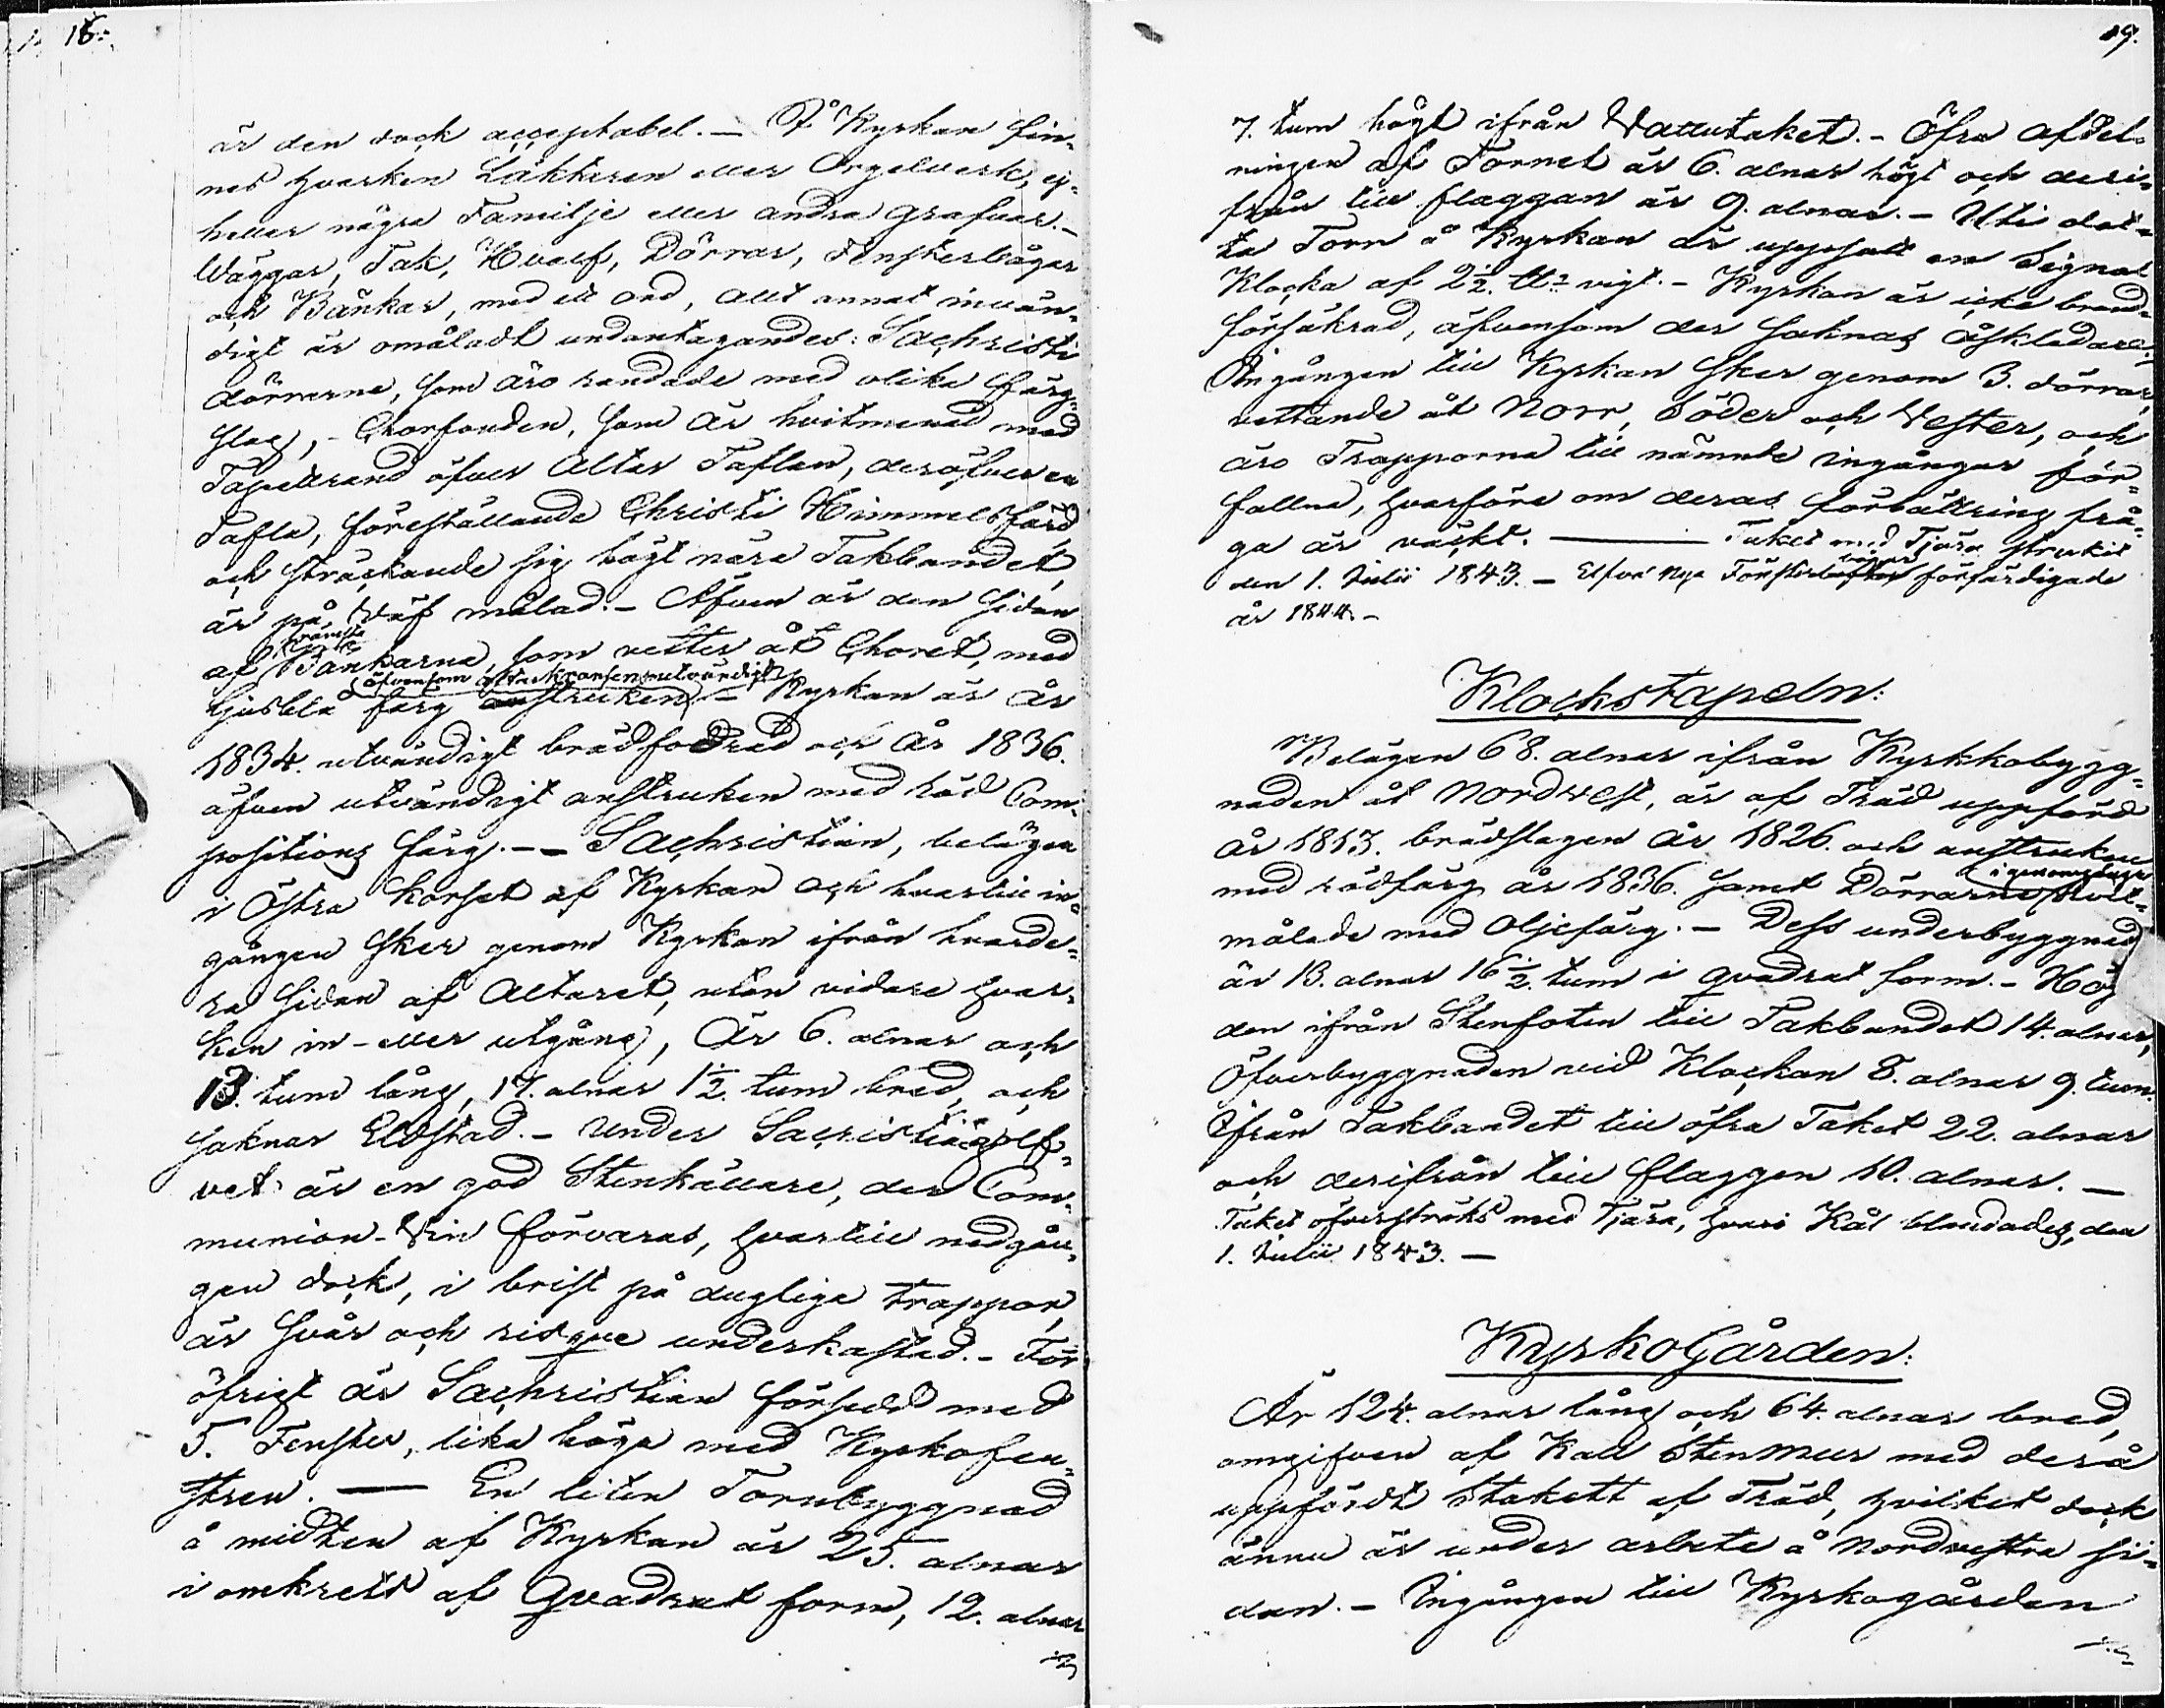 18.
är den dock acceptabel. — I Kyrkan fin-
nes hvarken Läktaren eller Orgelverk, ej-
heller några Familje eller andra grafvar. —
Wäggar, Tak, Hvalf, Dörrar, Fensterbågar
och Bänkar, med ett ord, allt annat invän-
digt är omåladt undantagandes: Sachristi
dörrarne, som äro randade med olika färg-
slag, — Chorfonden, som är hvitmenad med
Tapetrand öfver Altar Taflan, deröfver en
Tafla, föreställande Christi Himmelsfärd
och sträckande sig högt nära Takbandet,
är på Väf målad. — Äfven är den sidan
af främsta Bänkarne, som vetter åt Choret, med
ljusblå färg anstruken (äfvensom utvändigt) — Kyrkan är År
1834. utvändigt brädfodrad och År 1836.
äfven utvändigt anstruken med röd Com-
positions färg. — — Sachristian, belägen
i Östra Korset af Kyrkan och hvartill in-
gången sker genom Kyrkan ifrån hvarde-
ra sidan af Altaret, utan vidare hvar-
ken in- eller utgång, Är 6. alnar och
13. tum lång, 17. alnar 1½. tum bred, och
saknar Eldstad. — Under Sacristiegolf-
vet är en god Stenkällare, der Com-
munion-Vin förvaras, hvartill nedgån-
gen dock, i brist på dugliga trappor,
är svår och risque underkastad. — För
öfrigt är Sachristian försedd med
5. Fenster, lika höga med Kyrkofen-
stren. — En liten Tornbyggnad
å midten af Kyrkan är 25. alnar
i omkrets af Qvadrat form, 12. alnar
19.
7. tum högt ifrån Vattutaket. — Öfra afdel-
ningen af Tornet är 6. alnar högt och deri-
från till flaggan är 9. alnar. — Uti det-
ta Torn å Kyrkan är uppsatt en Signal
Klocka af 2½. vigt. — Kyrkan är icke brand-
försäkrad, äfvensom der saknas åskledare.
Ingången till Kyrkan sker genom 3. dörrar,
vettande åt Norr, Söder och Vester, och
äro Trapporna till nämnde ingångar för-
fallna, hvarföre om deras förbättring frå-
ga är väckt. — Taket med Tjära struket
den 1. Julii 1843. — Elfva nya Fönsterbågar förfärdigade
år 1844. —
Klockstapeln:
Belägen 68. alnar ifrån Kyrkkobygg-
naden åt Nordvest, är af Träd uppförd
År 1813. brädslagen År 1826. och anstruken
med rödfärg år 1836. samt Dörrarne i genomgången
målade med Oljefärg. — Dess underbyggnad
är 13. alnar 16½. tum i qvadrat form. — Höj
den ifrån Stenfoten till Takbandet 14. alnar,
Öfverbyggnaden vid Klockan 8. alnar 9. tum.
Ifrån Takbandet till öfra Taket 22. alnar
och derifrån till flaggen 10. alnar. —
Taket öfverströks med Tjära, hvari Kål blandades, den
1. Julii 1843. —
KyrkoGården:
Är 124. alnar lång och 64. alnar bred,
omgifven af Kall Stenmur med derå
uppfördt Stakett af Träd, hvilket dock
ännu är under arbete å Nordvestra si-
dan. — Ingången till Kyrkogården